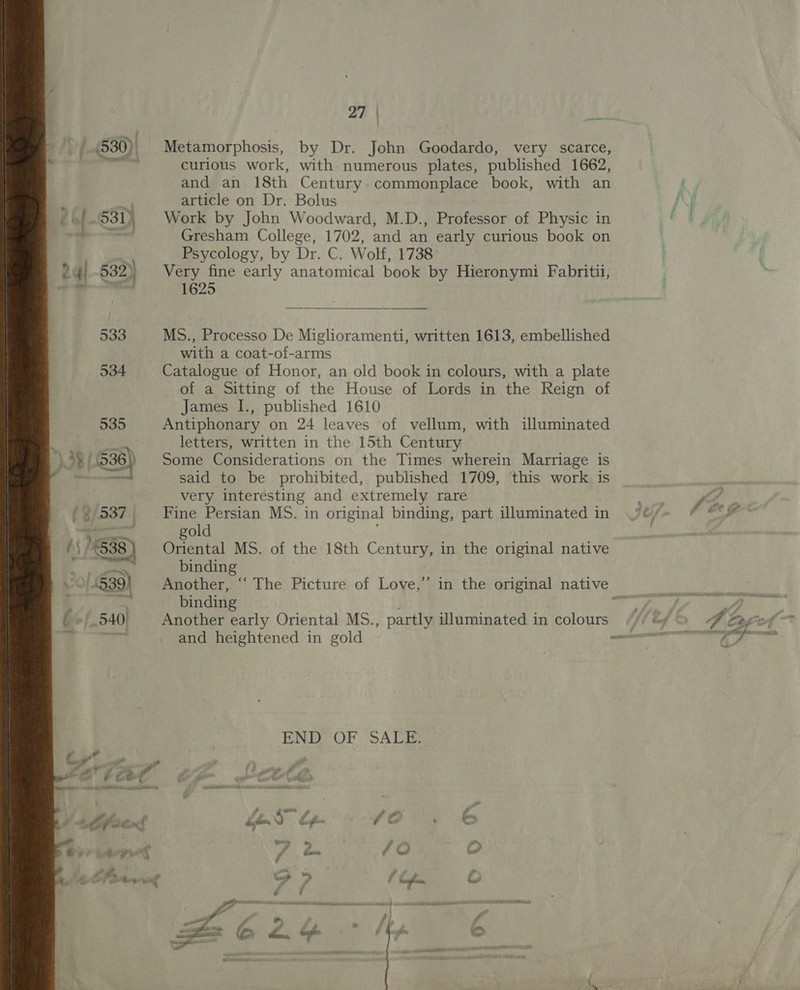 27
530) Metamorphosis, by Dr. John Goodardo, very scarce,
curious work, with numerous plates, published 1662,
and an 18th Century commonplace book, with an
article on Dr. Bolus
531) Work by John Woodward, M.D., Professor of Physic in
Gresham College, 1702, and an early curious book on
Psycology, by Dr. C. Wolf, 1738
532) Very fine early anatomical book by Hieronymi Fabritii,
1625
533 MS., Processo De Miglioramenti, written 1613, embellished
with a coat-of-arms
534 Catalogue of Honor, an old book in colours, with a plate
of a Sitting of the House of Lords in the Reign of
James I., published 1610
535 Antiphonary on 24 leaves of vellum, with illuminated
letters, written in the 15th Century
536) Some Considerations on the Times wherein Marriage is
said to be prohibited, published 1709, this work is
very interesting and extremely rare
537 Fine Persian MS. in original binding, part illuminated in
gold
538) Oriental MS. of the 18th Century, in the original native
binding
539) Another, “The Picture of Love,” in the original native
binding
540 Another early Oriental MS., partly illuminated in colours
and heightened in gold
END OF SALE.
10 . 6
72 10 0
97 14 0
£ 624 . 14 6